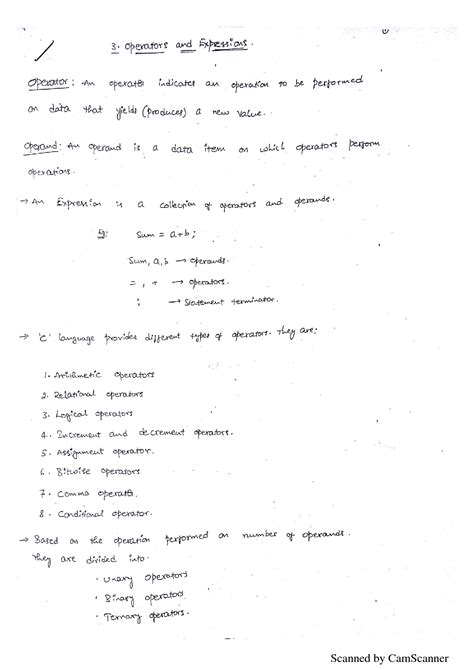 3. Operators and Expressions.
Operator: An operator indicates an operation to be performed
on data that yields (produces) a new value.
Operand: An operand is a data item on which operators perform
operations.
→ An Expression is a collection of operators and operands.
Eg: Sum = a+b;
Sum, a, b → operands.
=, + → operators.
; → Statement terminator.
→ 'C' language provides different types of operators. They are:
1. Arithmetic operators
2. Relational operators
3. Logical operators
4. Increment and decrement operators.
5. Assignment operator.
6. Bitwise operators
7. Comma operator.
8. Conditional operator.
→ Based on the operation performed on number of operands.
They are divided into.
· Unary operators
· Binary operators
· Ternary operators.
Scanned by CamScanner